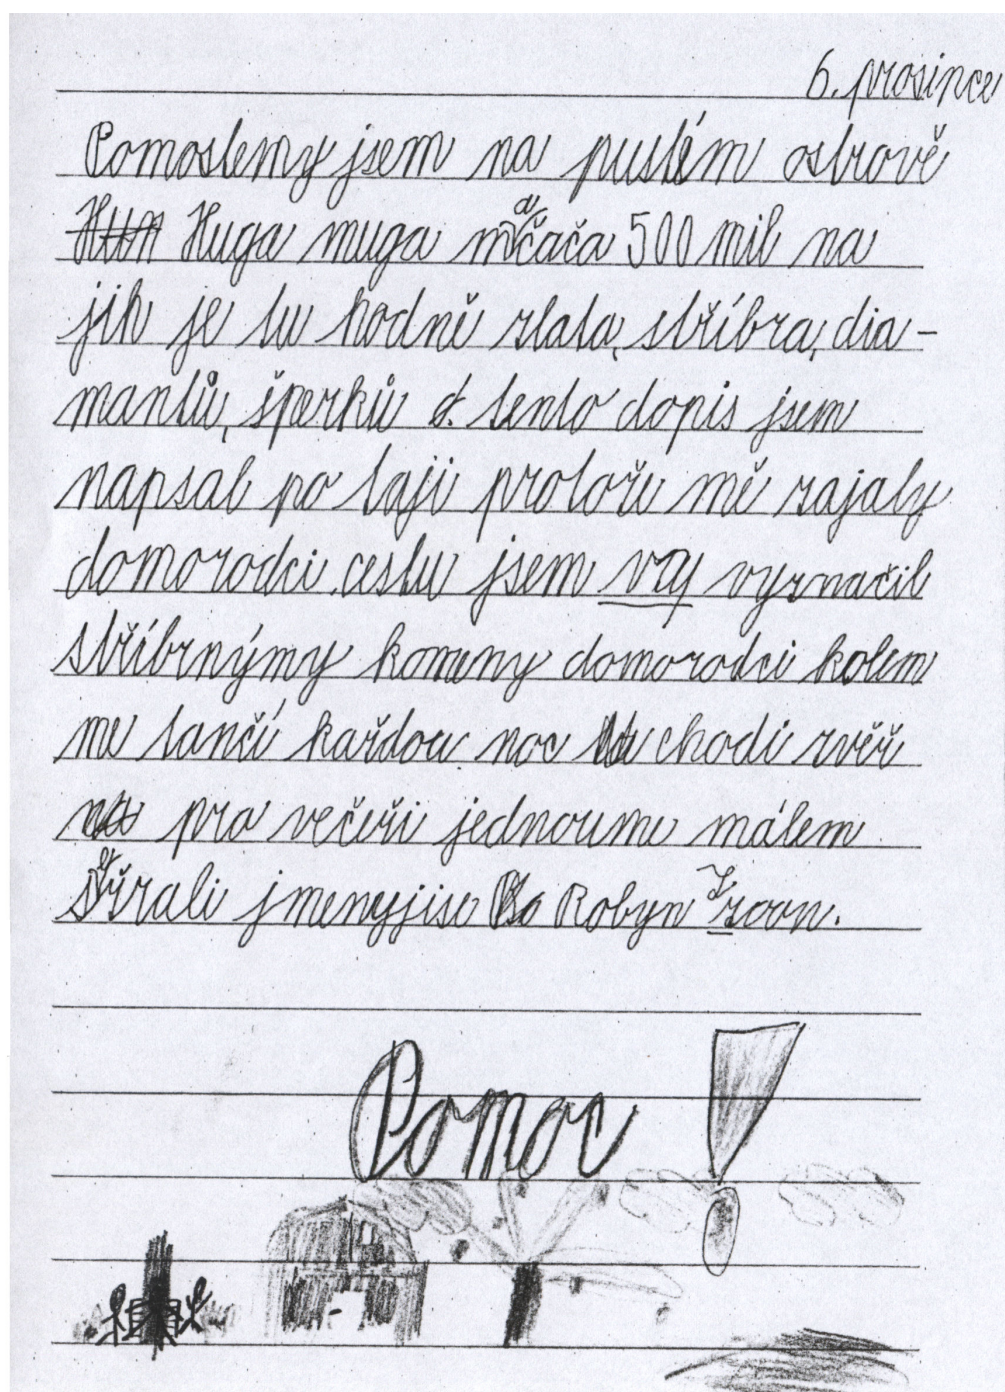 6. prosince
Pomostemy jsem na pustém ostrově
Huga muga mačača 500 mil na
jih je tu hodně zlata, stříbra, dia-
mantů, šperků tento dopis jsem
napsal po taji protože mě zajaly
domorodci, cestu jsem vzy vyznačil
stříbrnýmy kameny domorodci kolem
me tančí každou noc chodi zvěř
pro večeři jednoume málem
sežrali jmenyjise Robyn Zoon.
Pomoc !